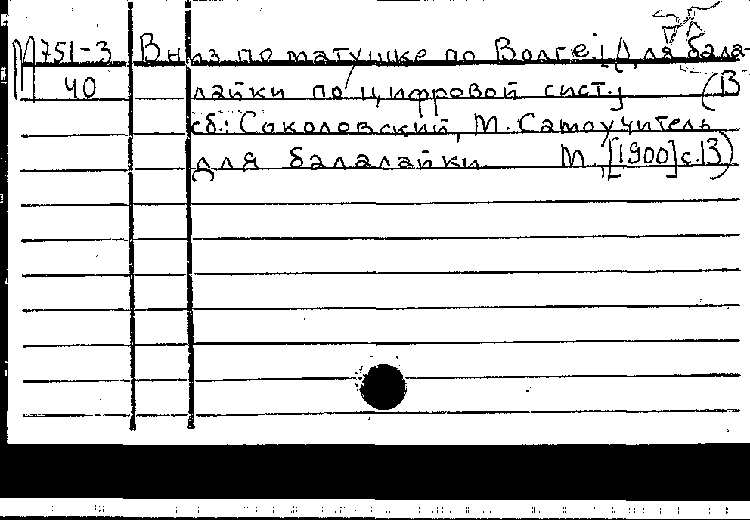 М751-3 Вниз по матушке по Волге; [Для бала-
40 лайки по цифровой сист.] (В
сб.: Соколовский, М. Самоучитель
для балалайки. М., [1900] с.13)